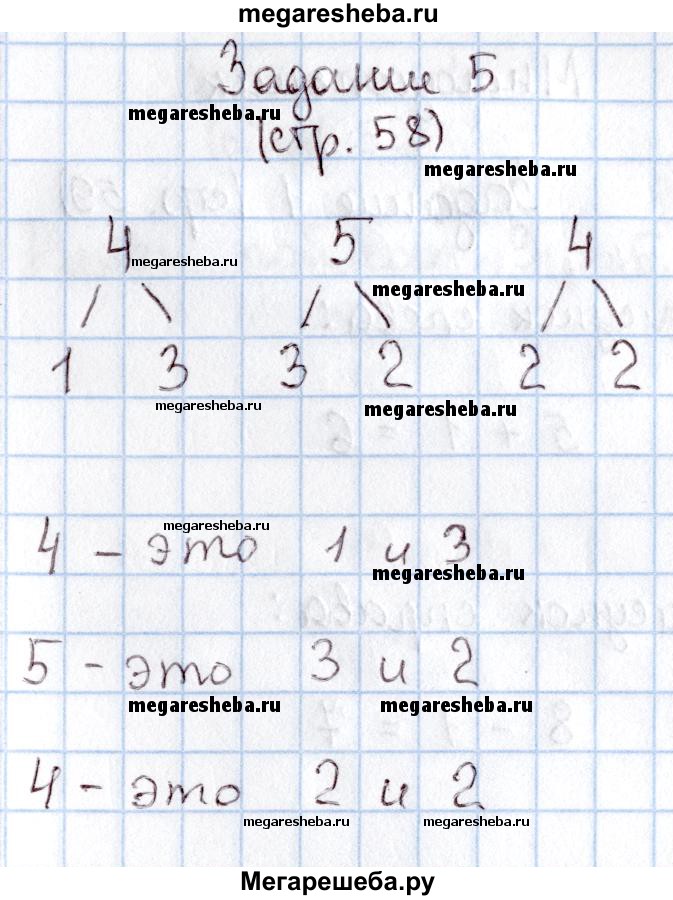 megaresheba.ru
Задание 5
megaresheba.ru
(стр. 58)
megaresheba.ru
4 5 4
megaresheba.ru
megaresheba.ru
1 3 3 2 2 2
megaresheba.ru
megaresheba.ru
megaresheba.ru
4 - это 1 и 3
megaresheba.ru
5 - это 3 и 2
megaresheba.ru megaresheba.ru
4 - это 2 и 2
megaresheba.ru megaresheba.ru
Мегарешеба.ру